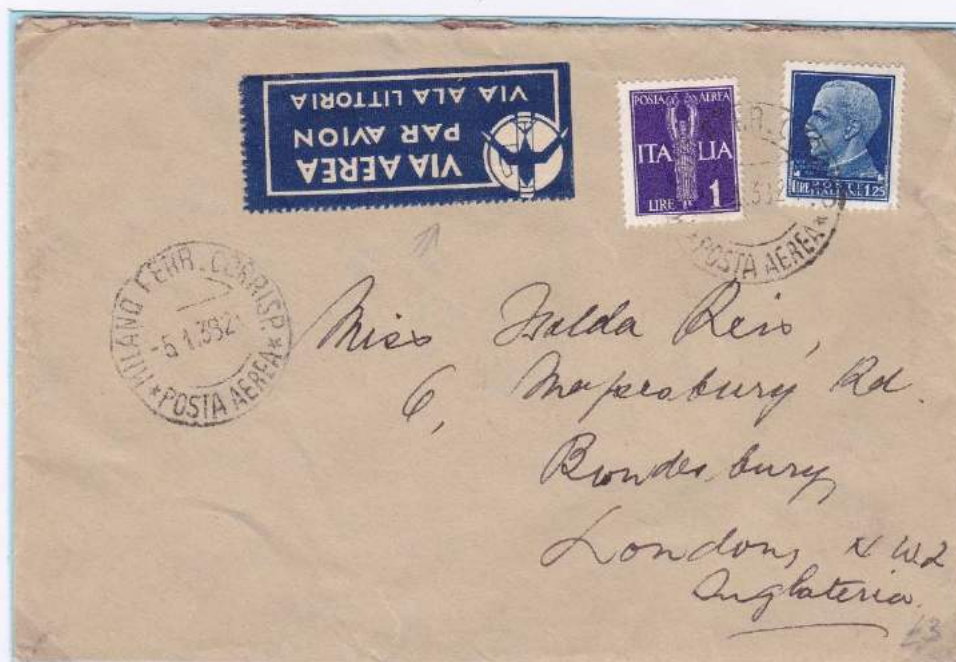 VIA AEREA
PAR AVION
VIA ALA LITTORIA
POSTA AEREA
ITALIA
LIRE 1
LIRE 1.25
POSTA AEREA
MILANO FERR. CORRISP.
-5.1.38 21
* POSTA AEREA *
Miss Isolda Reis,
6, Mapesbury Rd.
Brondesbury
London, N.W.2
Inghilterra.